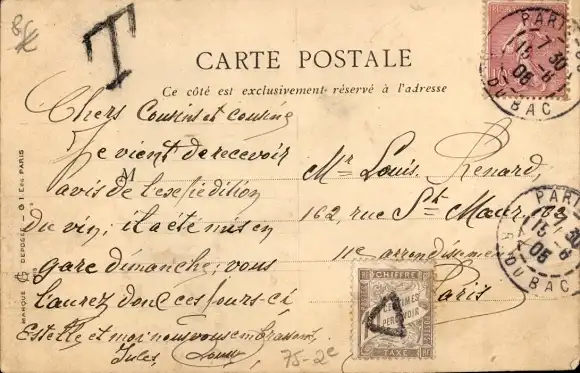 8€
T
CARTE POSTALE
Ce côté est exclusivement réservé à l'adresse
Chers Cousins et cousine
Je vient de recevoir
avis de l'expédition
du vin; il a été mis en
gare dimanche; vous
l'aurez donc ces jours-ci
Estelle et moi nous vous embrassons
Jules
Mr Louis Renard,
162, rue St Maur,
11e arrondissement
Paris
PARIS
7 30
15 -6
06
R. DU BAC
PARIS
7 30
15 -6
06
R. DU BAC
CHIFFRE
CENTIMES
PERCEVOIR
TAXE
MARQUE DÉPOSÉE - G I Éd. PARIS
75-2e